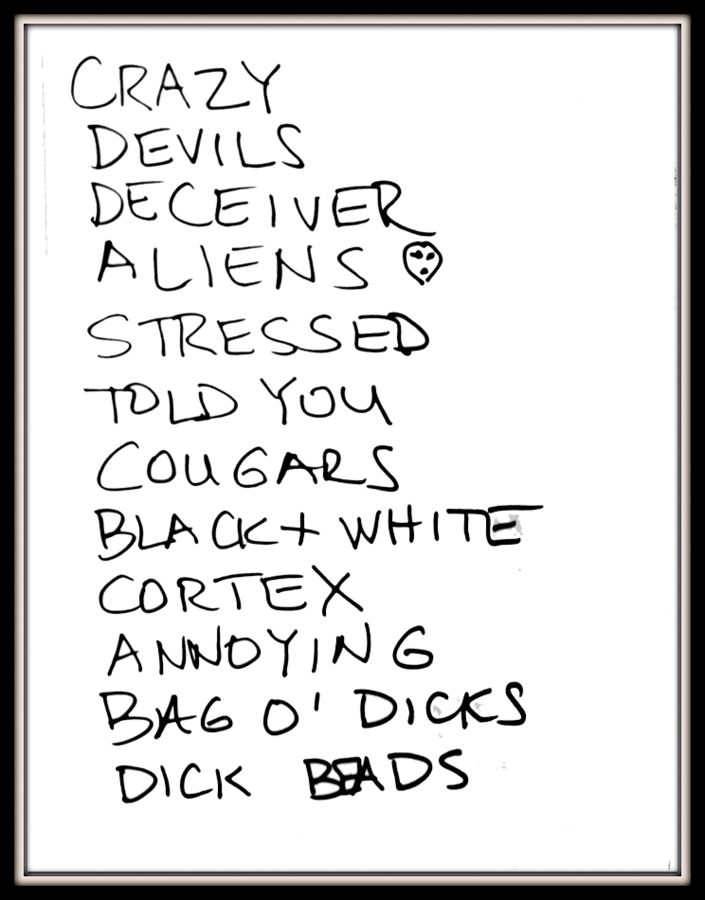 CRAZY
DEVILS
DECEIVER
ALIENS
STRESSED
TOLD YOU
COUGARS
BLACK + WHITE
CORTEX
ANNOYING
BAG O' DICKS
DICK BEADS